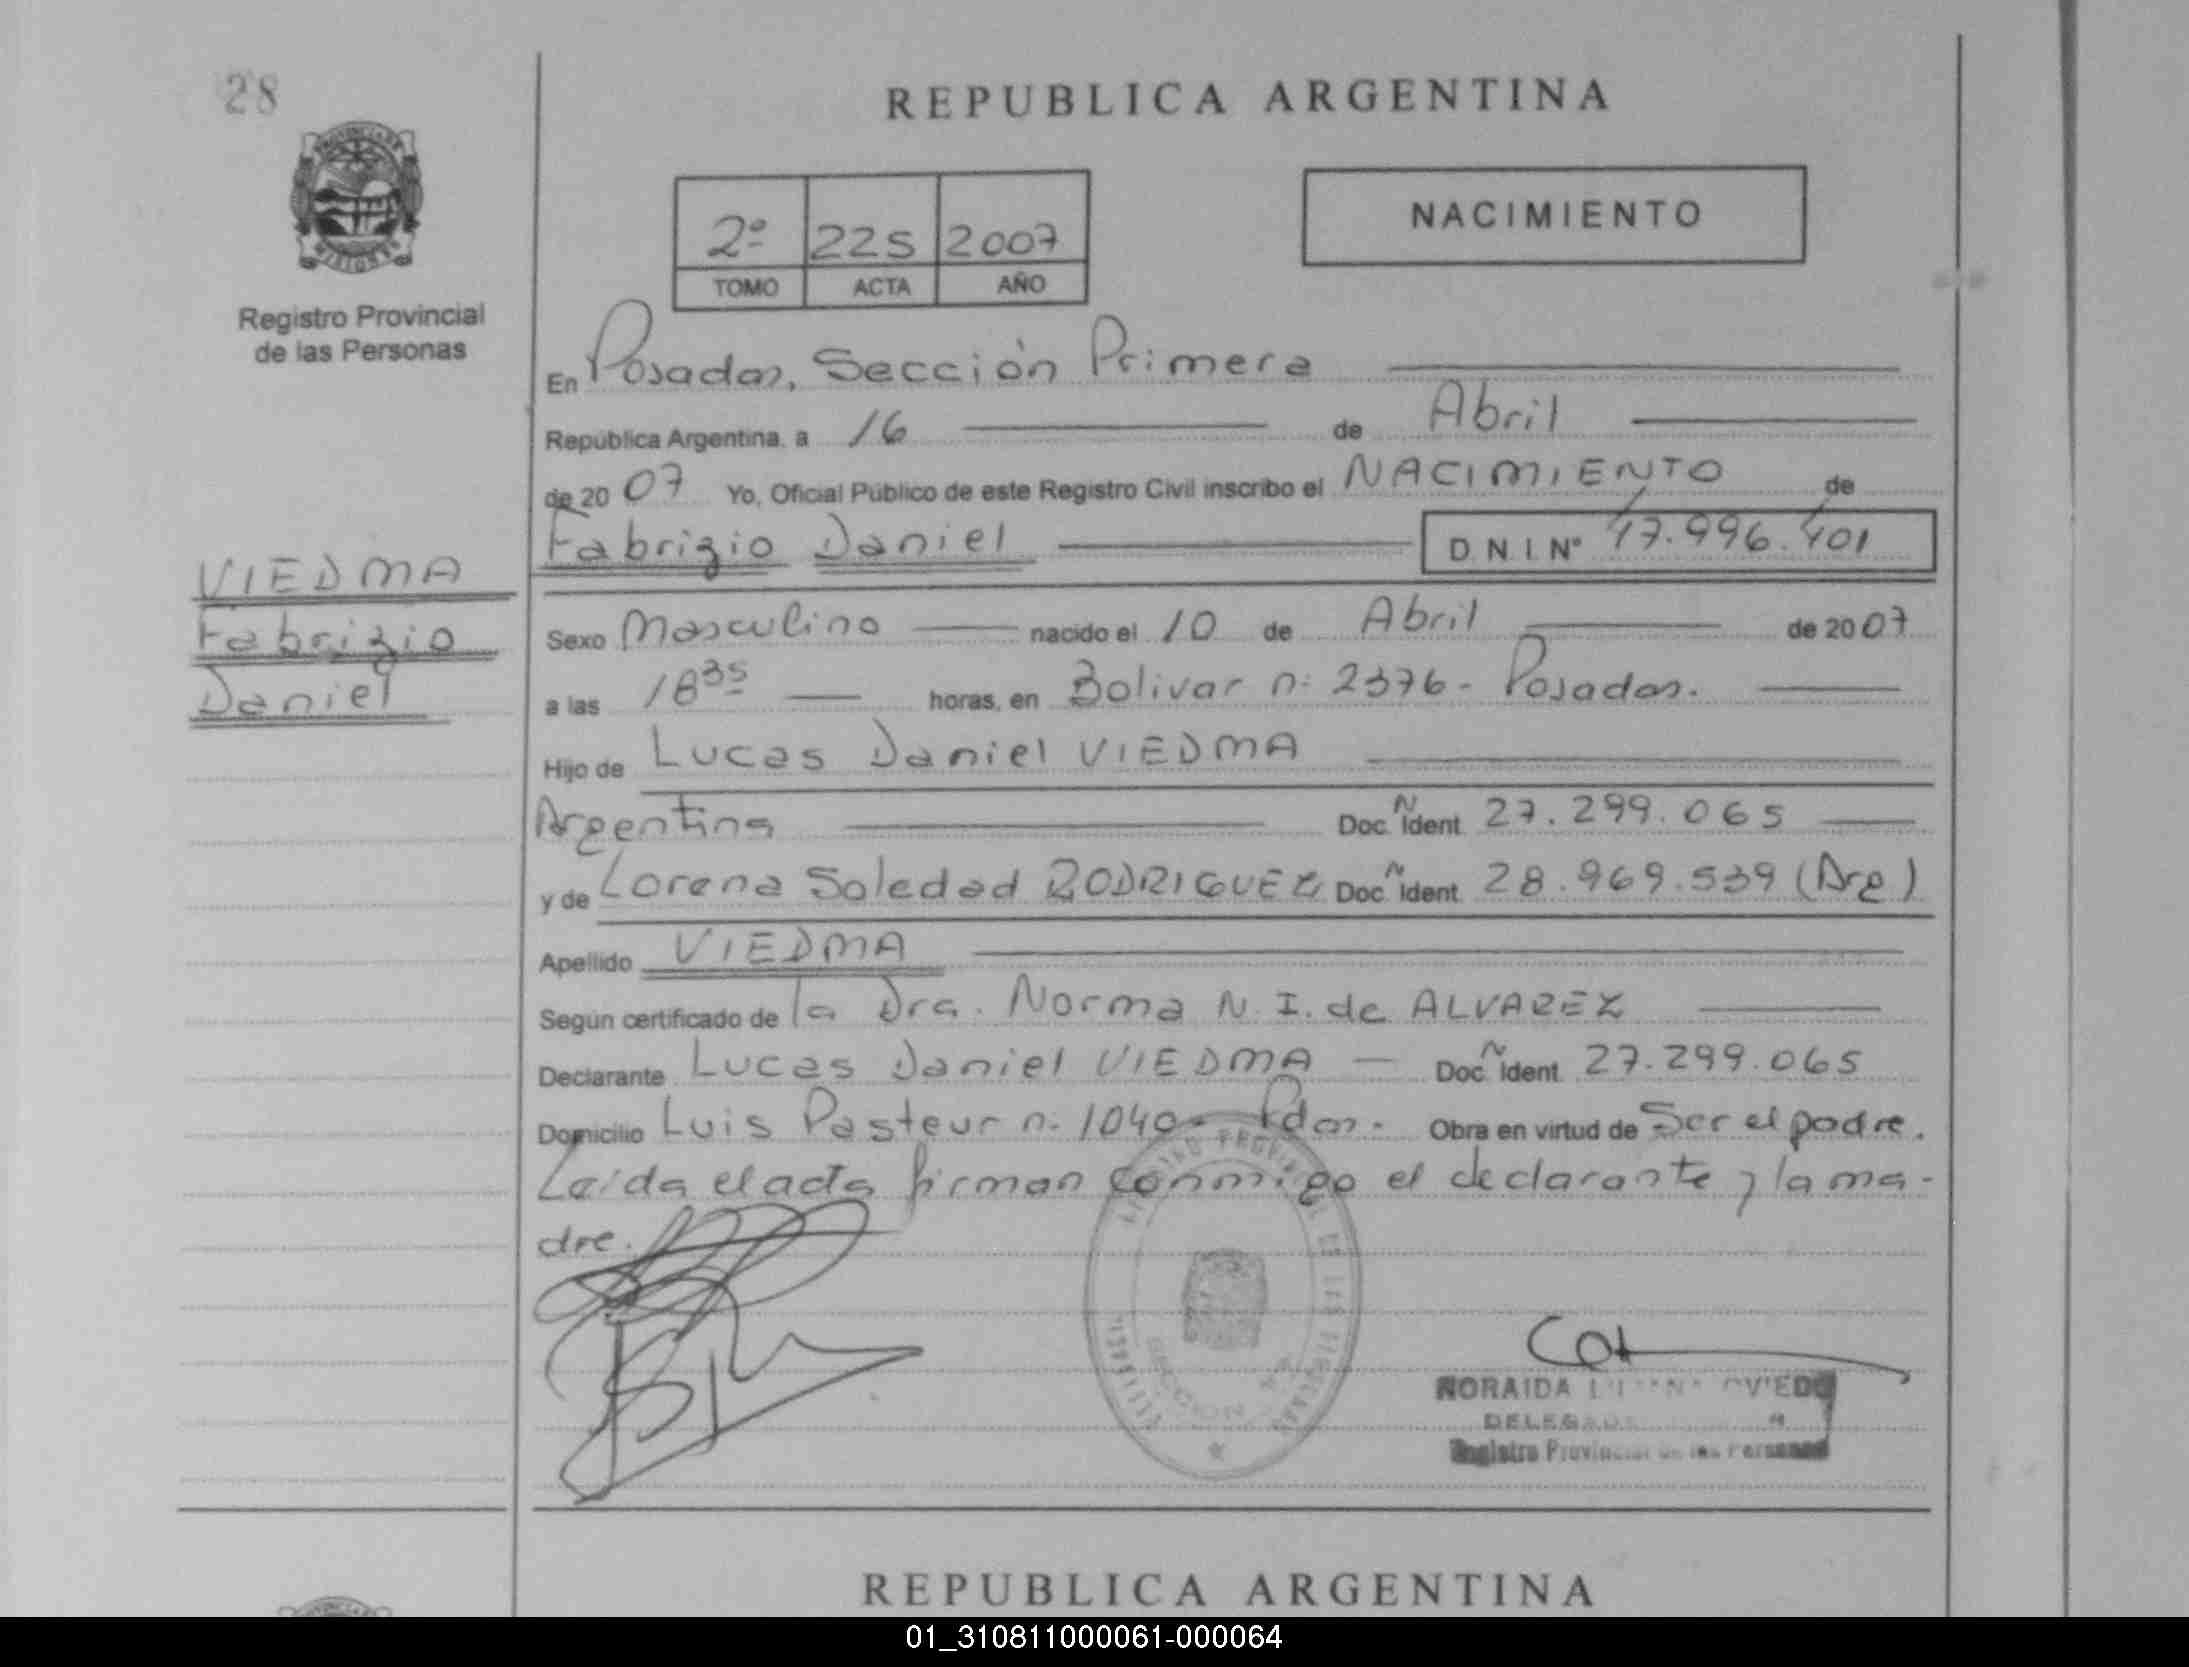 28
REPUBLICA ARGENTINA
2º 225 2007
TOMO ACTA AÑO
NACIMIENTO
Registro Provincial
de las Personas
En Posadas, Sección Primera
República Argentina, a 16 de Abril
de 2007 Yo, Oficial Público de este Registro Civil inscribo el NACIMIENTO de
Fabrizio Daniel D.N.I. Nº 47.996.401
VIEDMA
Fabrizio
Daniel
Sexo Masculino nacido el 10 de Abril de 2007
a las 18 35 horas, en Bolivar n: 2376 - Posadas.
Hijo de Lucas Daniel VIEDMA
Argentina Doc. Ñ Ident. 27.299.065
y de Lorena Soledad RODRIGUEZ Doc. Ñ Ident. 28.969.539 (Arg)
Apellido VIEDMA
Según certificado de la Dra. Norma N. I. de ALVAREZ
Declarante Lucas Daniel VIEDMA - Doc. Ñ Ident. 27.299.065
Domicilio Luis Pasteur n. 1040 - Pdas. Obra en virtud de Ser el padre.
Leída el acta firman conmigo el declarante y la ma-
dre.
REGISTRO PROVINCIAL DE LAS PERSONAS
SECCION
MISIONES
NORAIDA OVIEDO
Registro Provincial de las Personas
REPUBLICA ARGENTINA
01_310811000061-000064